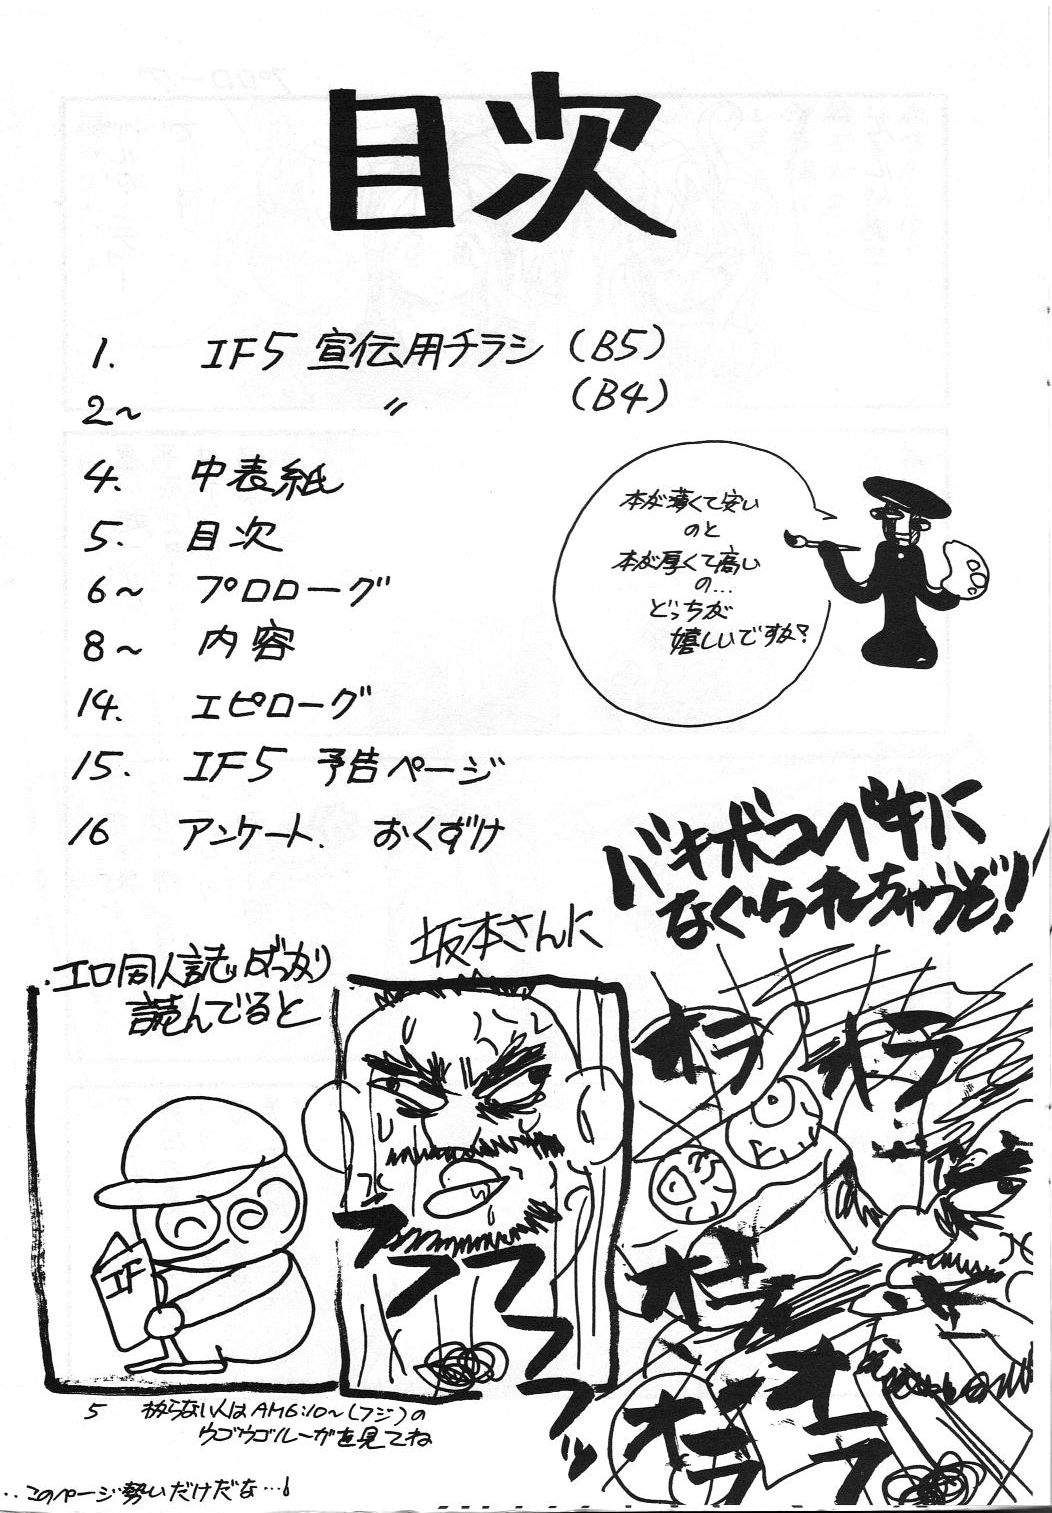 目次
1. IF5 宣伝用チラシ (B5)
2~ 〃 (B4)
4. 中表紙
5. 目次
6~ プロローグ
8~ 内容
14. エピローグ
15. IF5 予告ページ
16 アンケート. おくずけ
本が薄くて安い
のと
本が厚くて高い
の…
どっちが
嬉しいですか?
エロ同人誌ばっかり
読んでると
坂本さんに
バキボコバキに
なぐられちゃうぞ!
IF
フフフフフフッ
オラ
オラ
オラ
オラ
オラ
5 わからない人はAM6:10~(フジ)の
ウゴウゴルーガを見てね
‥このページ勢いだけだな…!